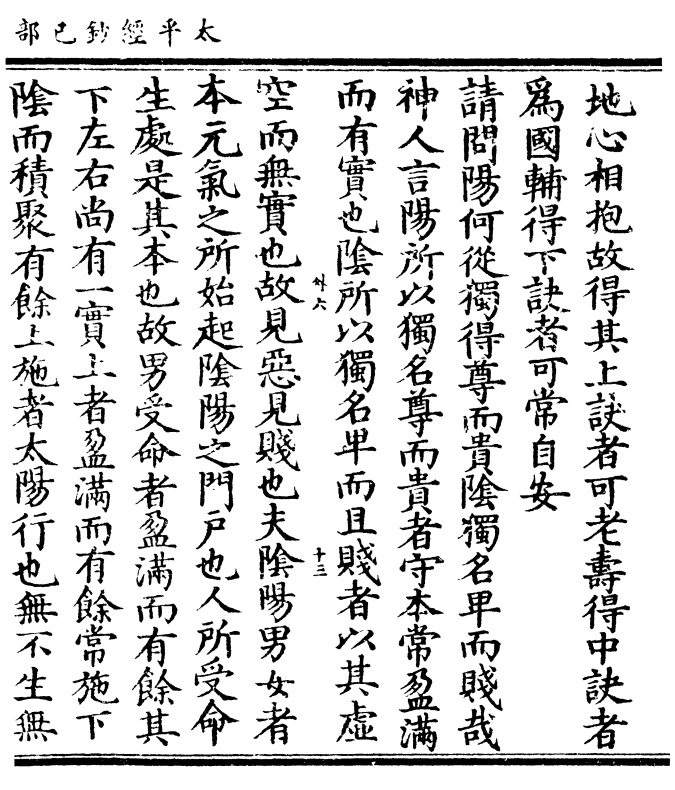 太平經鈔已部
地心相抱故得其上訣者可老壽得中訣者
爲國輔得下訣者可常自安
請問陽何從獨得尊而貴陰獨名卑而賤哉
神人言陽所以獨名尊而貴者守本常盈滿
而有實也陰所以獨名卑而且賤者以其虛
空而無實也故見惡見賤也夫陰陽男女者
外六
十三
本元氣之所始起陰陽之門戶也人所受命
生處是其本也故男受命者盈滿而有餘其
下左右尚有一實上者盈滿而有餘常施下
陰而積聚有餘上施者太陽行也無不生無